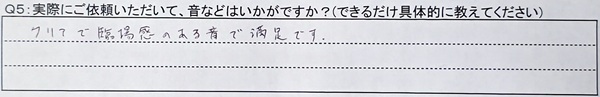 Q5：実際にご依頼いただいて、音などはいかがですか？（できるだけ具体的に教えてください）
クリアで臨場感のある音で満足です.